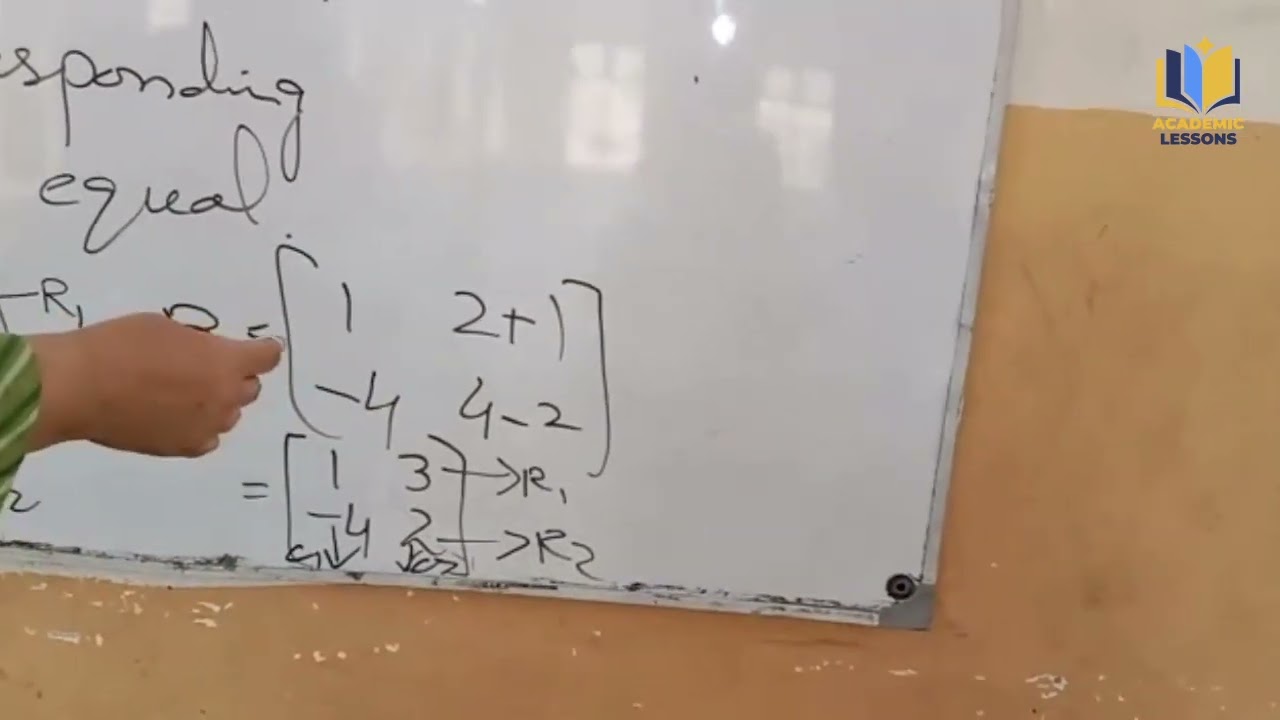 sponding
equal
-R1 = [ 1 2+1
-4 4-2 ]
= [ 1 3 ] → R1
[ -4 2 ] → R2
C1 C2
ACADEMIC
LESSONS